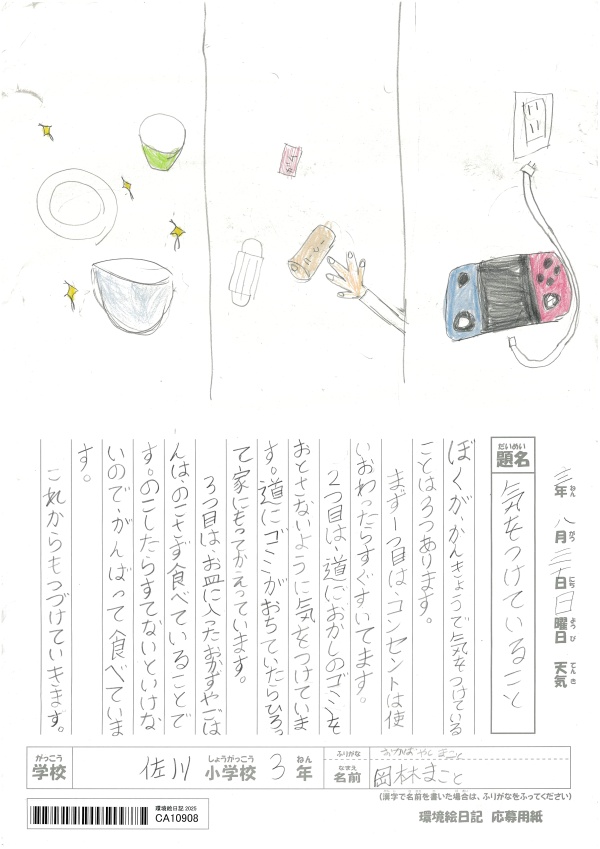 三年 八月 三十日 日曜日 天気
ねん がつ にち ようび てんき
だいめい
題名
気をつけていること
ぼくが、かんきょうで気をつけている
ことは3つあります。
まず一つ目は、コンセントは使
いおわったらすぐすいてます。
2つ目は、道におかしのゴミを
おとさないように気をつけていま
す。道にゴミがおちていたらひろっ
て家にもってかえっています。
3つ目は、お皿に入ったおかずやごは
んは、のこさず食べていることで
す。のこしたらすてないといけな
いので、がんばって食べていま
す。
これからもつづけていきます。
がっこう
学校
佐川 小学校 3年
しょうがっこう ねん
ふりがな
おかばやし まこと
なまえ
名前
岡林まこと
(漢字で名前を書いた場合は、ふりがなをふってください)
環境絵日記 2025
CA10908
環境絵日記 応募用紙